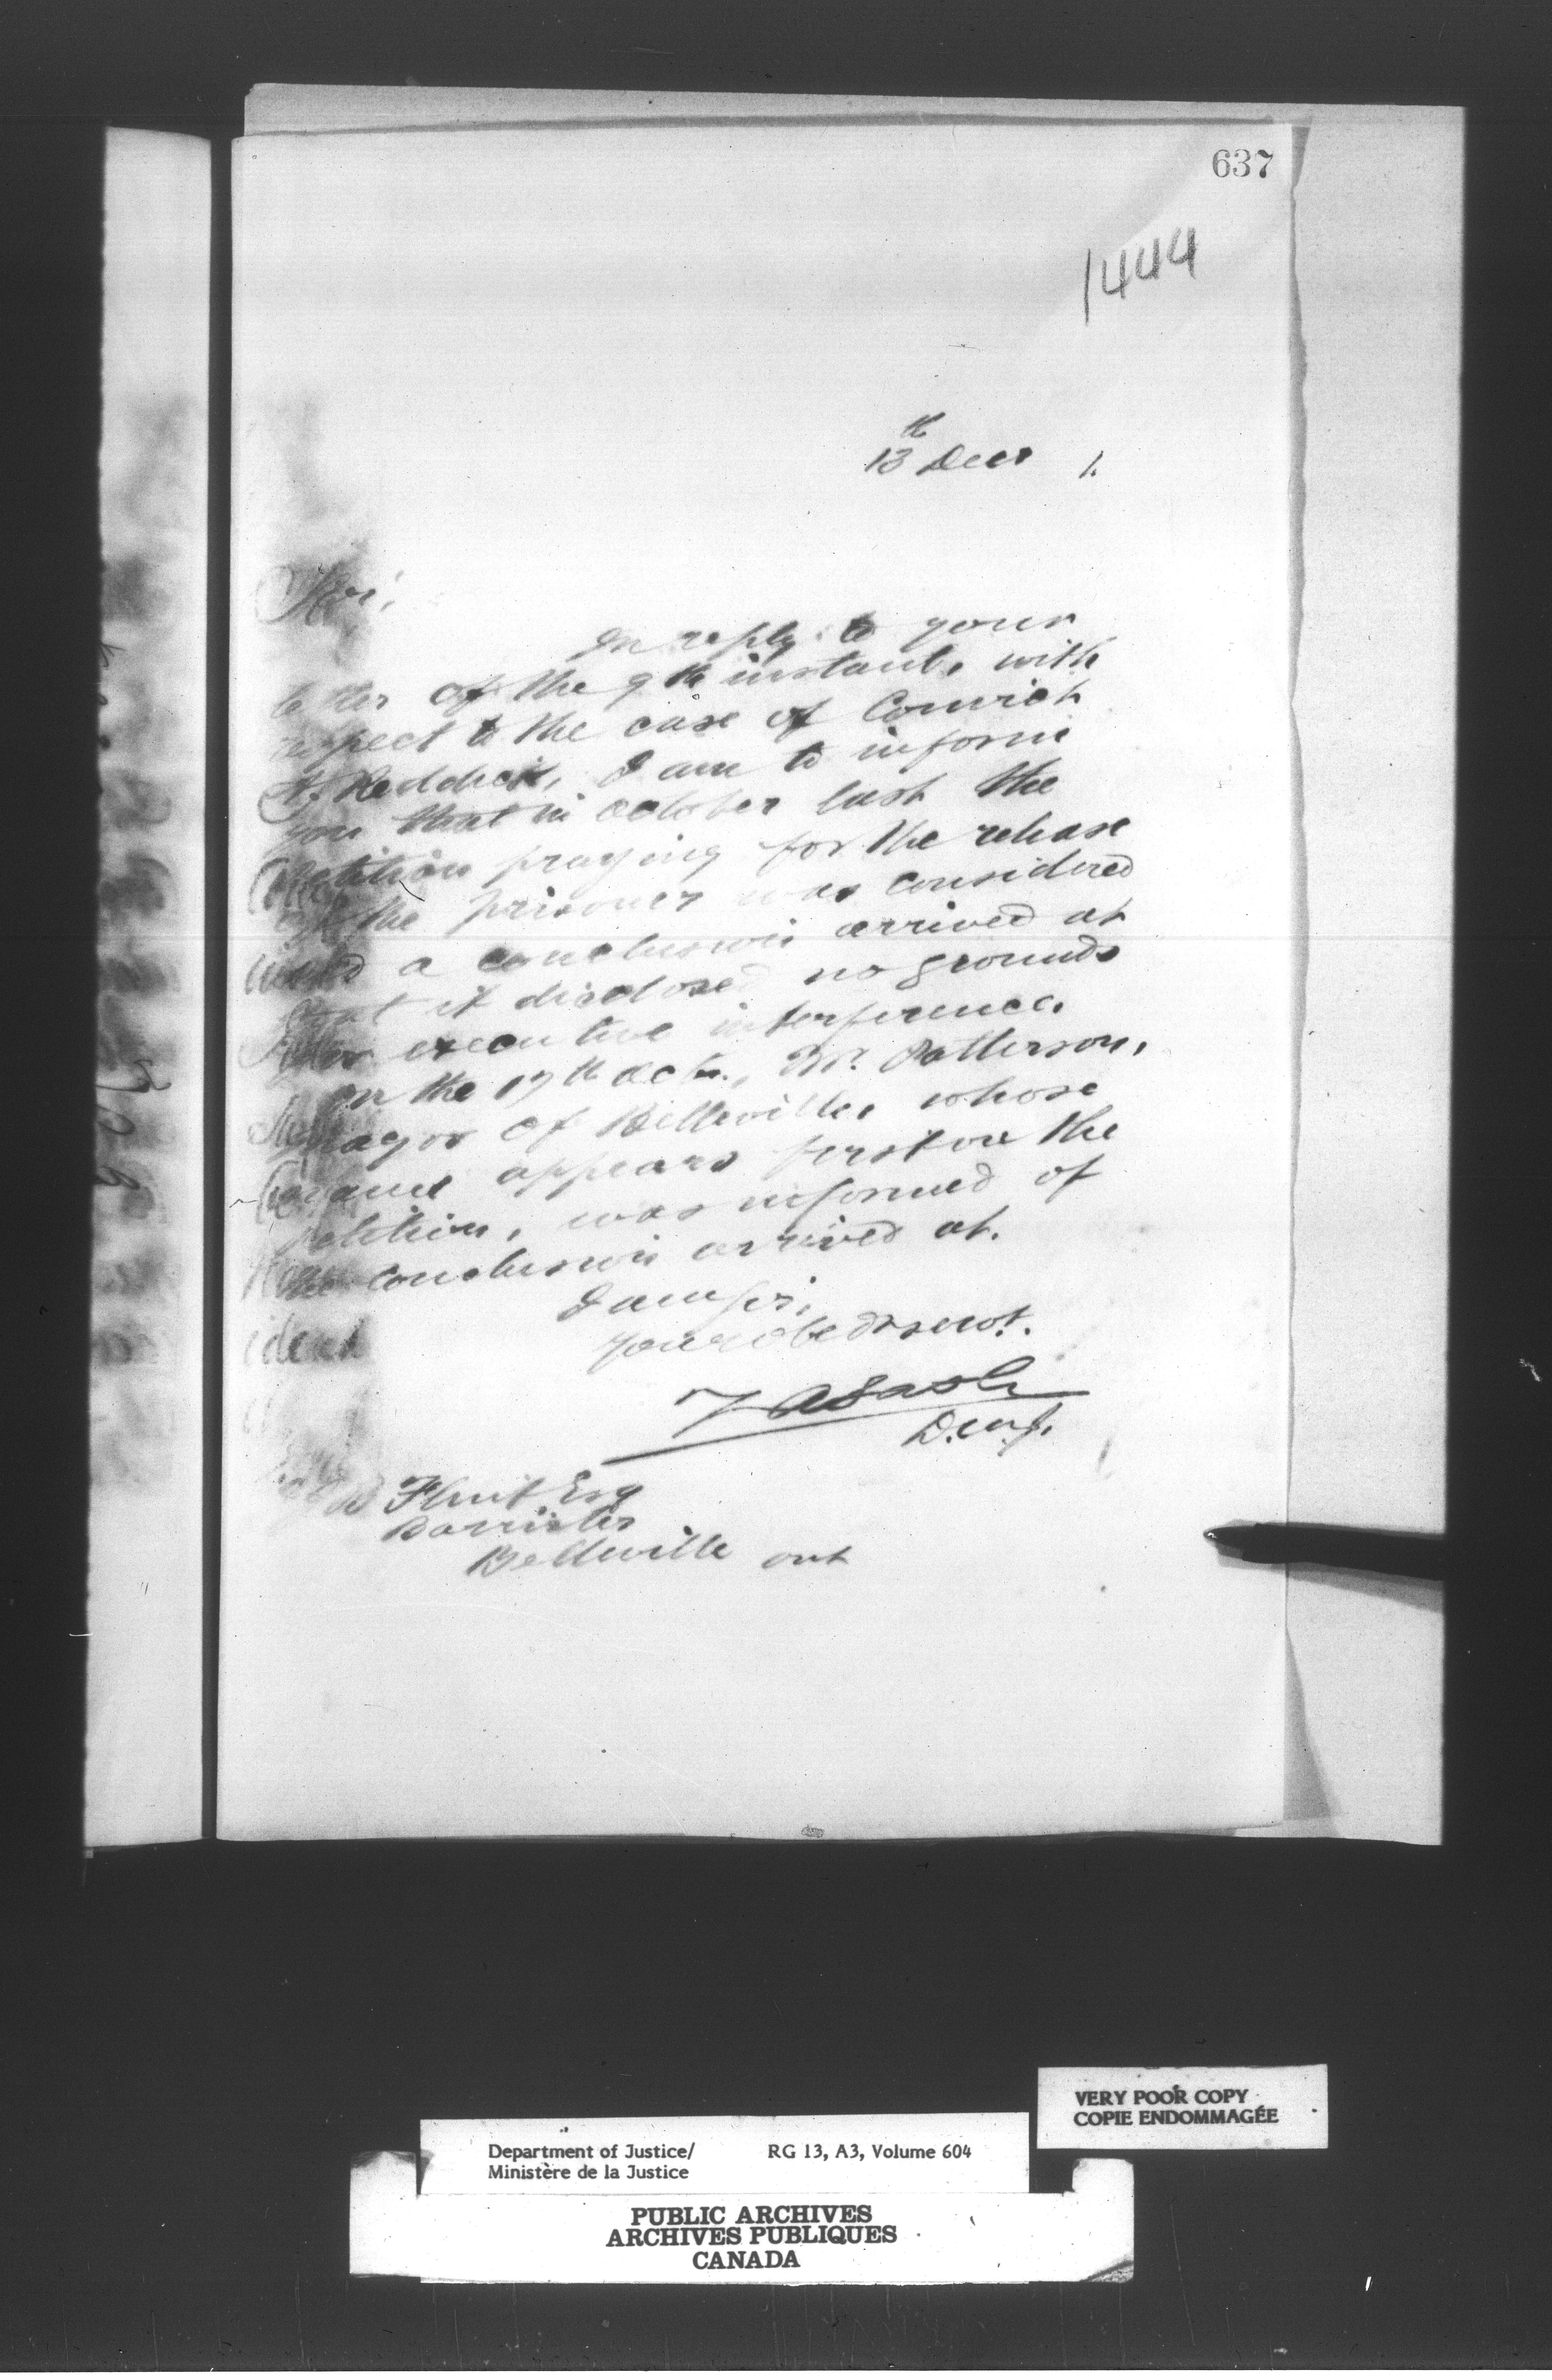 637
1444
13th Decr 1.
Sir,
In reply to your
letter of the 9th instant, with
respect to the case of Convict
Reddick, I am to inform
you that in October last the
petition praying for the release
of the prisoner was considered
and a conclusion arrived at
that it disclosed no grounds
for executive interference.
On the 17th Octr., Mr. Patterson,
Mayor of Belleville, whose
name appears first on the
petition, was informed of
the conclusion arrived at.
I am Sir,
Your obedt servt.
D.M.J.
B Flint Esq
Barrister
Belleville Ont
VERY POOR COPY
COPIE ENDOMMAGÉE
Department of Justice/ RG 13, A3, Volume 604
Ministère de la Justice
PUBLIC ARCHIVES
ARCHIVES PUBLIQUES
CANADA